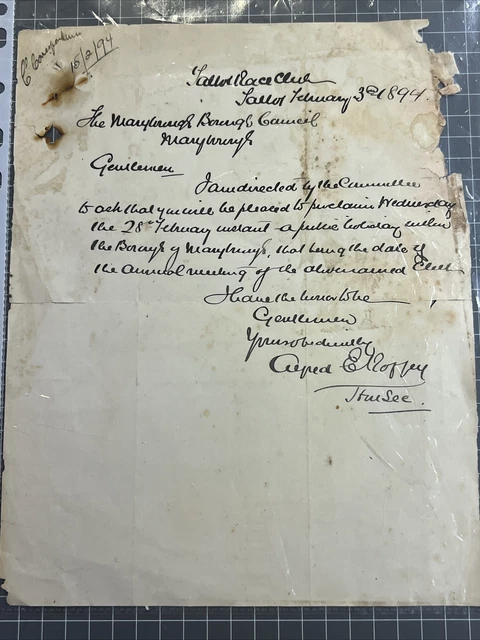 15/2/94
Talbot Race Club
Talbot February 3rd 1894.
The Maryborough Borough Council
Maryborough
Gentlemen
I am directed by the Committee
to ask that you will be pleased to proclaim Wednesday
the 28th February instant a public holiday within
the Borough of Maryborough, that being the date of
the annual meeting of the abovenamed Club
I have the honor to be
Gentlemen
Yours obediently
Alfred E
Hon Sec.